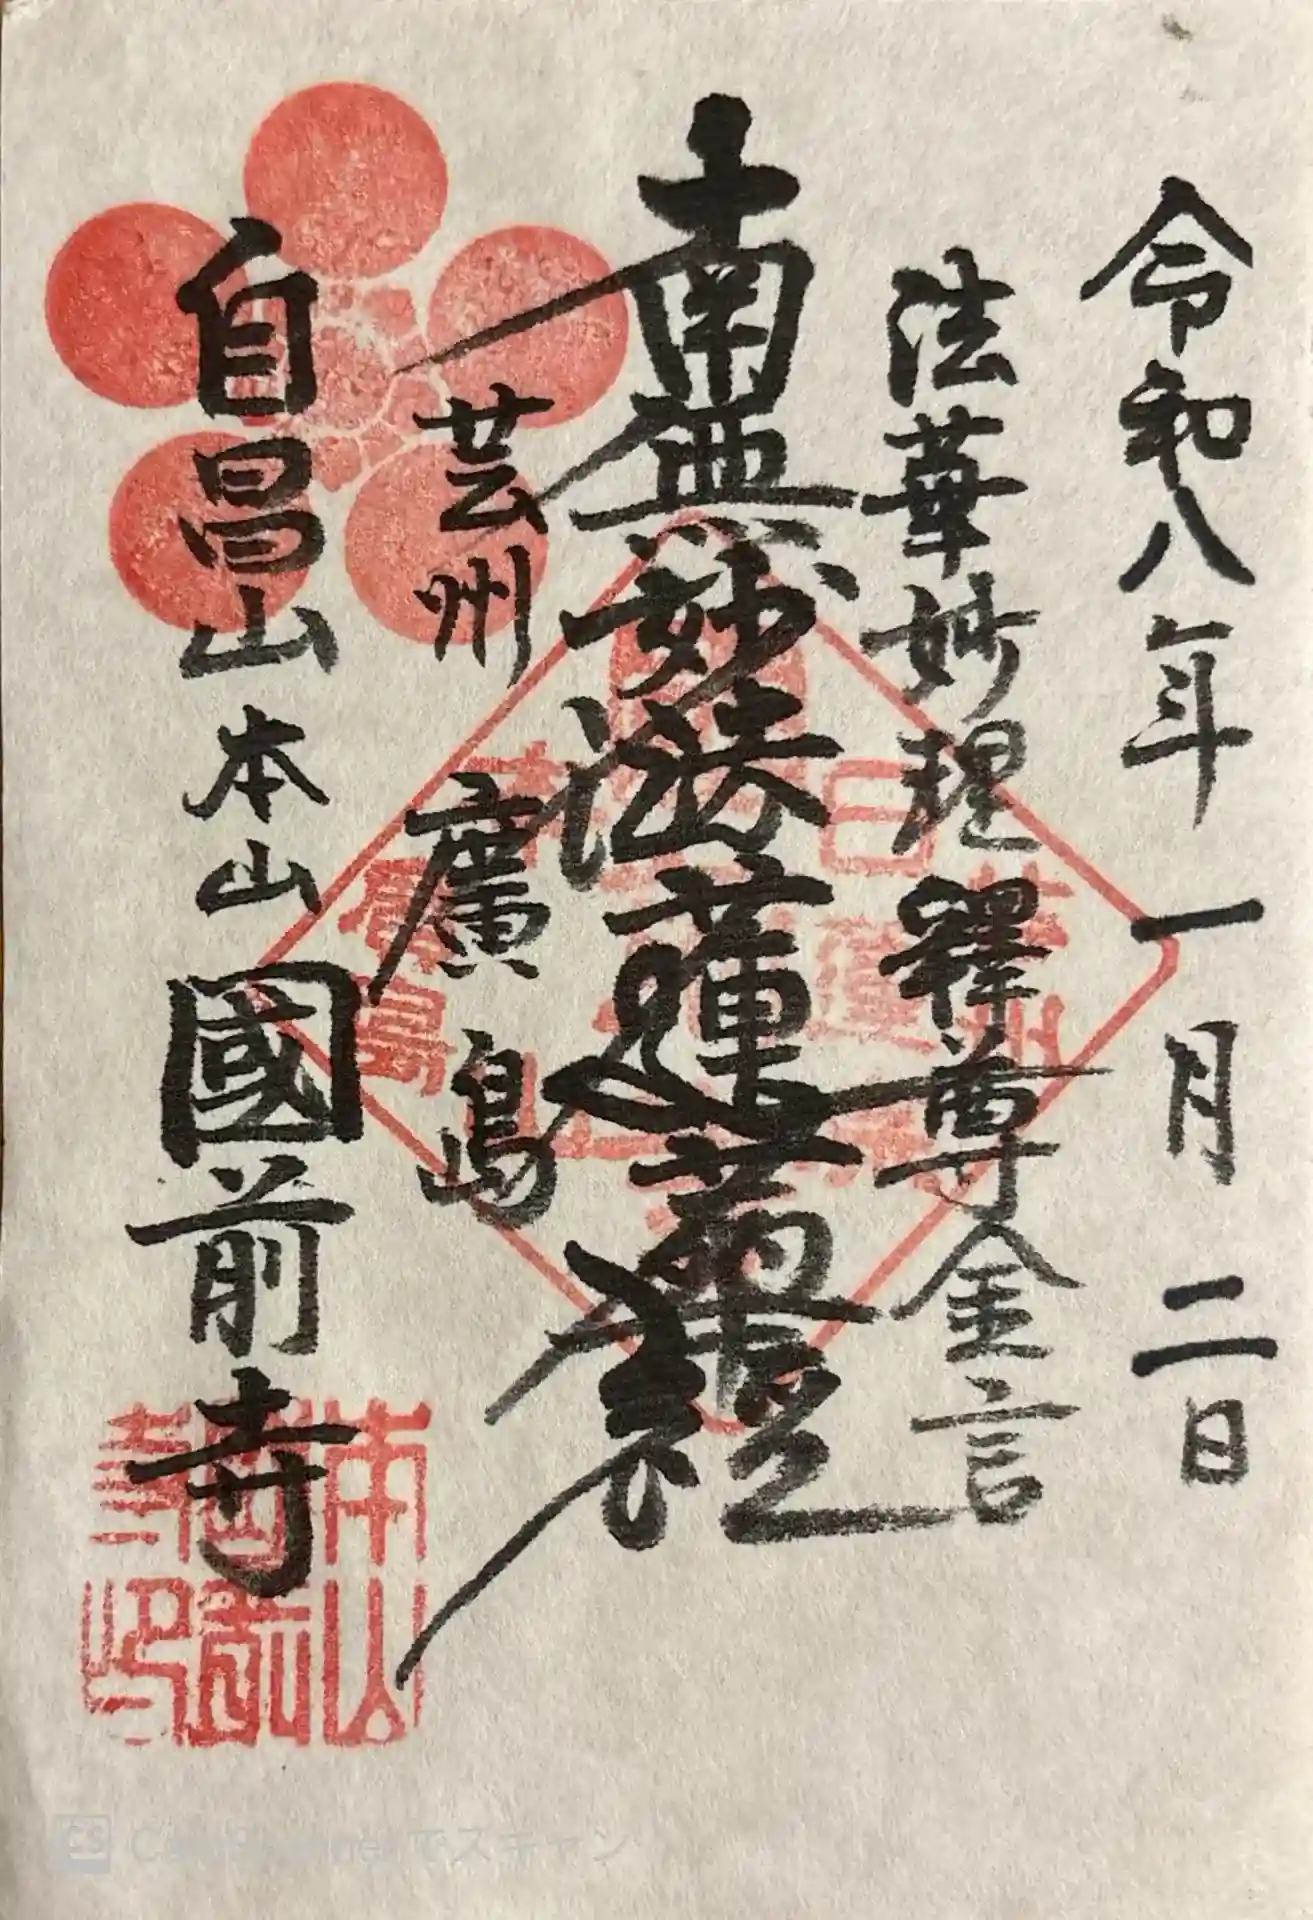 令和八年一月二日
法華妙理釋尊金言
南無妙法蓮華経
芸州廣島
自昌山本山國前寺
CamScannerでスキャン